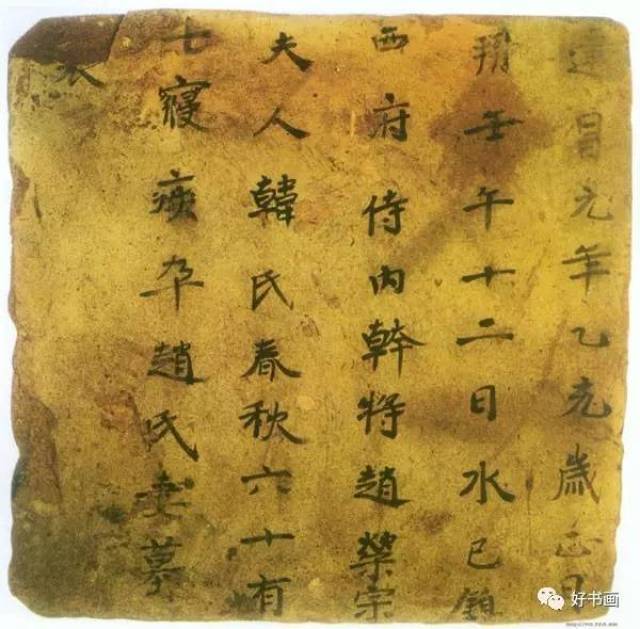 建昌元年乙亥歲正月
朔壬午十二日水巳鎮
西府侍内幹將趙榮宗
夫人韓氏春秋六十有
七寢疾卒趙氏妻墓
表
好书画